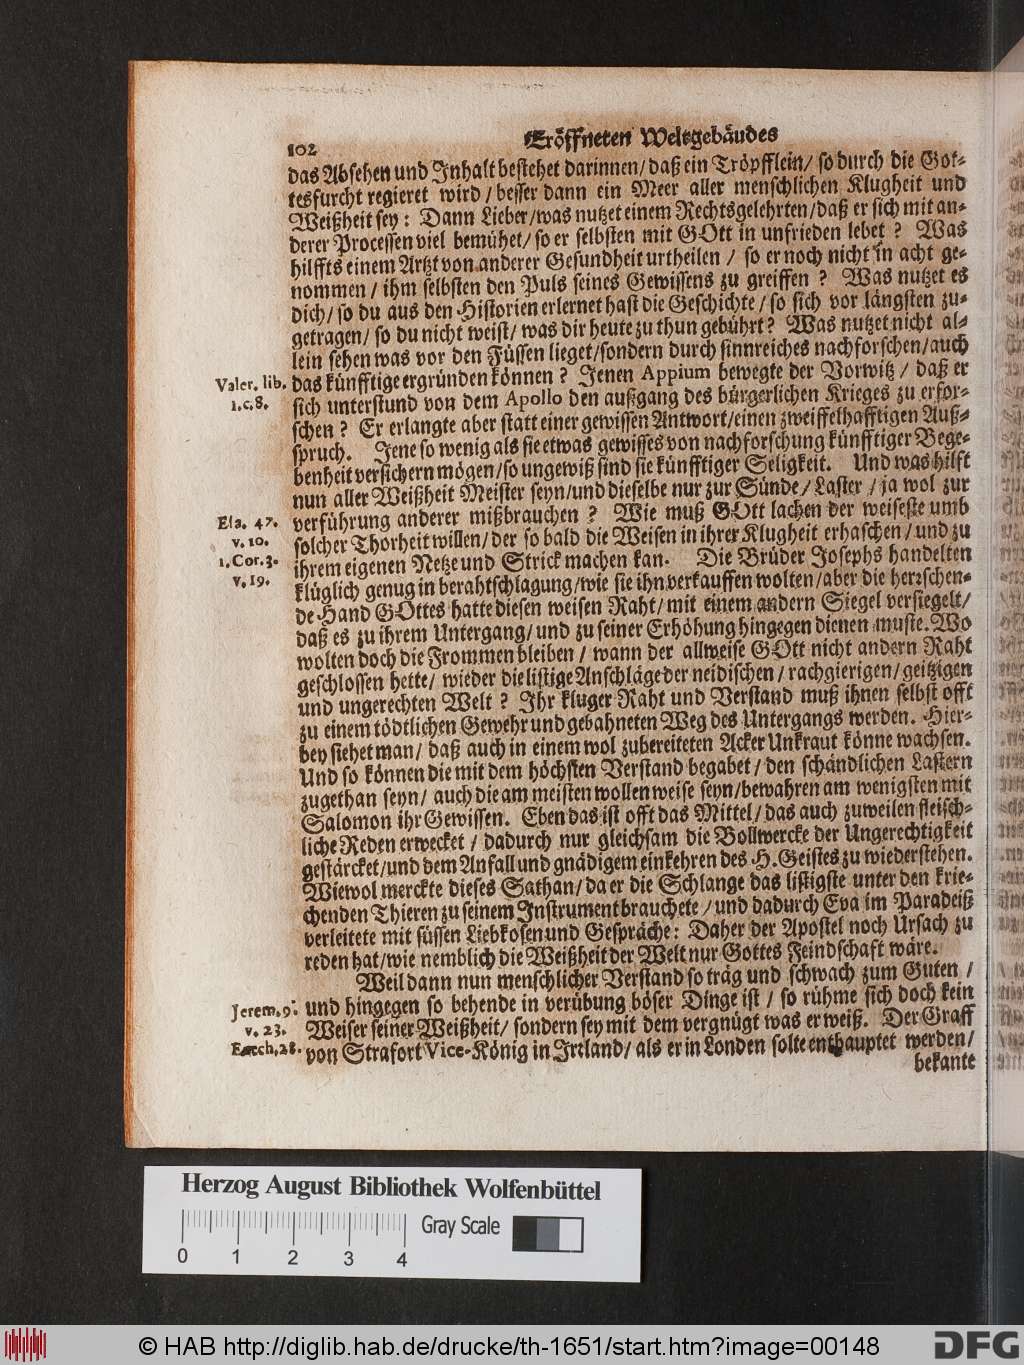 102
Eröffneten Weltgebäudes
das Absehen und Jnhalt bestehet darinnen/ daß ein Tröpfflein/ so durch die Got-
tesfurcht regieret wird / besser dann ein Meer aller menschlichen Klugheit und
Weißheit sey: Dann Lieber/ was nutzet einem Rechtsgelehrten/ daß er sich mit an-
derer Processen viel bemühet/ so er selbsten mit GOtt in unfrieden lebet ? Was
hilffts einem Artzt von anderer Gesundheit urtheilen / so er noch nicht in acht ge-
nommen / ihm selbsten den Puls seines Gewissens zu greiffen ? Was nutzet es
dich/ so du aus den Historien erlernet hast die Geschichte / so sich vor längsten zu-
getragen/ so du nicht weist/ was dir heute zu thun gebührt? Was nutzet nicht al-
lein sehen was vor den Füssen lieget/ sondern durch sinnreiches nachforschen/ auch
Valer. lib.
1.c.8.
das künfftige ergründen können ? Jenen Appium bewegte der Vorwitz / daß er
sich unterstund von dem Apollo den außgang des bürgerlichen Krieges zu erfor-
schen ? Er erlangte aber statt einer gewissen Antwort/ einen zweiffelhafftigen Auß-
spruch. Jene so wenig als sie etwas gewisses von nachforschung künfftiger Bege-
benheit versichern mögen/ so ungewiß sind sie künfftiger Seligkeit. Und was hilft
nun aller Weißheit Meister seyn/ und dieselbe nur zur Sünde/ Laster / ja wol zur
Esa. 47.
v. 10.
1. Cor. 3.
v. 19.
verführung anderer mißbrauchen ? Wie muß GOtt lachen der weiseste umb
solcher Thorheit willen/ der so bald die Weisen in ihrer Klugheit erhaschen / und zu
ihrem eigenen Netze und Strick machen kan. Die Brüder Josephs handelten
klüglich genug in berahtschlagung/ wie sie ihn verkauffen wolten/ aber die herrschen-
de Hand GOttes hatte diesen weisen Raht/ mit einem andern Siegel versiegelt/
daß es zu ihrem Untergang/ und zu seiner Erhöhung hingegen dienen muste. Wo
wolten doch die Frommen bleiben / wann der allweise GOtt nicht andern Raht
geschlossen hette/ wieder die listige Anschläge der neidischen / rachgierigen/ geitzigen
und ungerechten Welt ? Jhr kluger Raht und Verstand muß ihnen selbst offt
zu einem tödtlichen Gewehr und gebahneten Weg des Untergangs werden. Hier-
bey siehet man/ daß auch in einem wol zubereiteten Acker Unkraut könne wachsen.
Und so können die mit dem höchsten Verstand begabet / den schändlichen Lastern
zugethan seyn/ auch die am meisten wollen weise seyn/ bewahren am wenigsten mit
Salomon ihr Gewissen. Eben das ist offt das Mittel / das auch zuweilen fleisch-
liche Reden erwecket / dadurch nur gleichsam die Bollwercke der Ungerechtigkeit
gestärcket/ und dem Anfall und gnädigem einkehren des H. Geistes zu wiederstehen.
Wiewol merckte dieses Sathan/ da er die Schlange das listigste unter den krie-
chenden Thieren zu seinem Jnstrument brauchete / und dadurch Eva im Paradeiß
verleitete mit süssen Liebkosen und Gespräche: Daher der Apostel noch Ursach zu
reden hat/ wie nemblich die Weißheit der Welt nur Gottes Feindschaft wäre.
Weil dann nun menschlicher Verstand so träg und schwach zum Guten /
Jerem. 9.
v. 23.
Ezech. 28.
und hingegen so behende in verübung böser Dinge ist / so rühme sich doch kein
Weiser seiner Weißheit/ sondern sey mit dem vergnügt was er weiß. Der Graff
von Strafort Vice-König in Jrrland/ als er in Londen solte enthauptet werden/
bekante
Herzog August Bibliothek Wolfenbüttel
Gray Scale
0 1 2 3 4
© HAB http://diglib.hab.de/drucke/th-1651/start.htm?image=00148
DFG